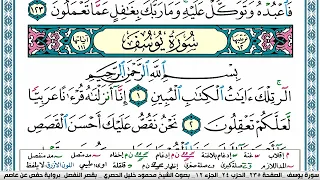 فَٱعْبُدْهُ وَتَوَكَّلْ عَلَيْهِ وَمَا رَبُّكَ بِغَٰفِلٍ عَمَّا تَعْمَلُونَ ١٢٣
سُورَةُ يُوسُفَ
بِسْمِ ٱللَّهِ ٱلرَّحْمَٰنِ ٱلرَّحِيمِ
الٓر تِلْكَ ءَايَٰتُ ٱلْكِتَٰبِ ٱلْمُبِينِ ١ إِنَّآ أَنزَلْنَٰهُ قُرْءَٰنًا عَرَبِيًّا
لَّعَلَّكُمْ تَعْقِلُونَ ٢ نَحْنُ نَقُصُّ عَلَيْكَ أَحْسَنَ ٱلْقَصَصِ
سورة يوسف - الصفحة ٢٣٥ الحزب ٢٤ الجزء ١٢ بصوت الشيخ محمود خليل الحصري - بقصر المنفصل برواية حفص عن عاصم